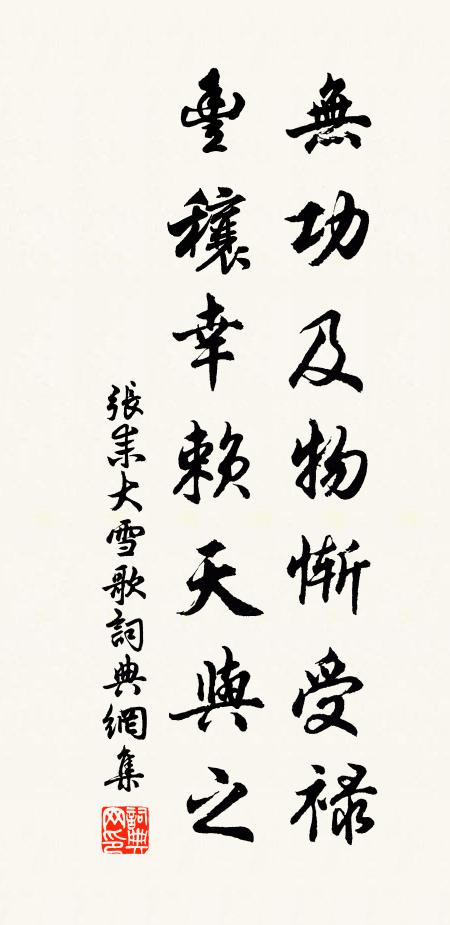 無功及物慚受禄
豐穰幸賴天與之
張耒大雪歌詞典網集
詞典网印